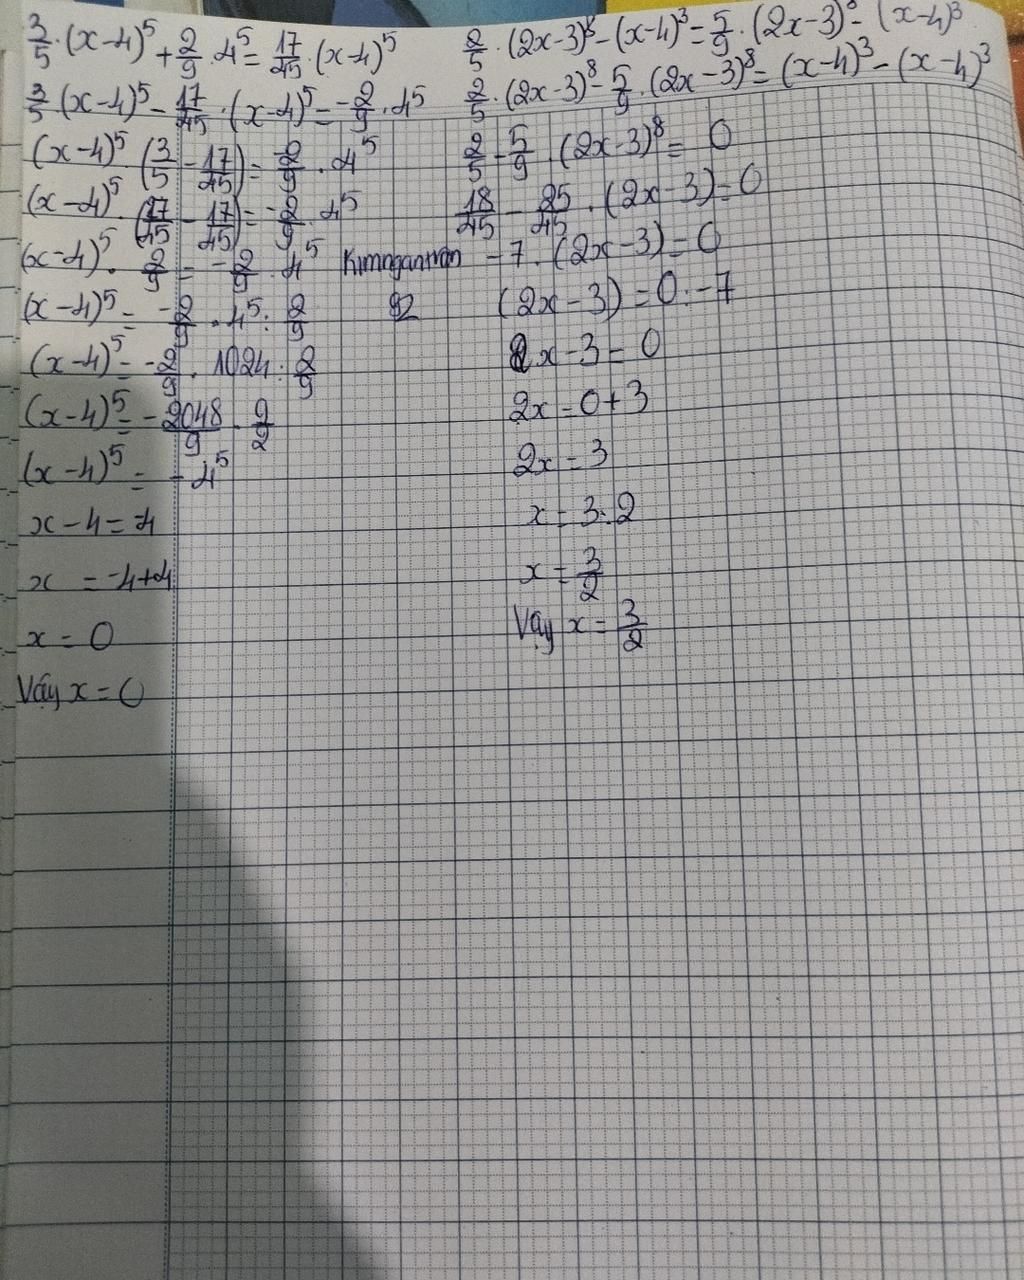 3/5 . (x-4)^5 + 2/9 . 4^5 = 17/45 . (x-4)^5
3/5 (x-4)^5 - 17/45 . (x-4)^5 = -2/9 . 4^5
(x-4)^5 . (3/5 - 17/45) = -2/9 . 4^5
(x-4)^5 . (27/45 - 17/45) = -2/9 . 4^5
(x-4)^5 . 2/9 = -2/9 . 4^5
(x-4)^5 = -2/9 . 4^5 : 2/9
(x-4)^5 = -2/9 . 1024 : 2/9
(x-4)^5 = -2048/9 . 9/2
(x-4)^5 = -4^5
x-4 = -4
x = -4+4
x = 0
Vậy x = 0
Kimngantran
92
2/5 . (2x-3)^8 - (x-4)^3 = 5/9 . (2x-3)^8 - (x-4)^3
2/5 . (2x-3)^8 - 5/9 . (2x-3)^8 = (x-4)^3 - (x-4)^3
2/5 - 5/9 . (2x-3)^8 = 0
18/45 - 25/45 . (2x-3) = 0
-7 . (2x-3) = 0
(2x-3) = 0 : -7
2x-3 = 0
2x = 0+3
2x = 3
x = 3:2
x = 3/2
Vậy x = 3/2